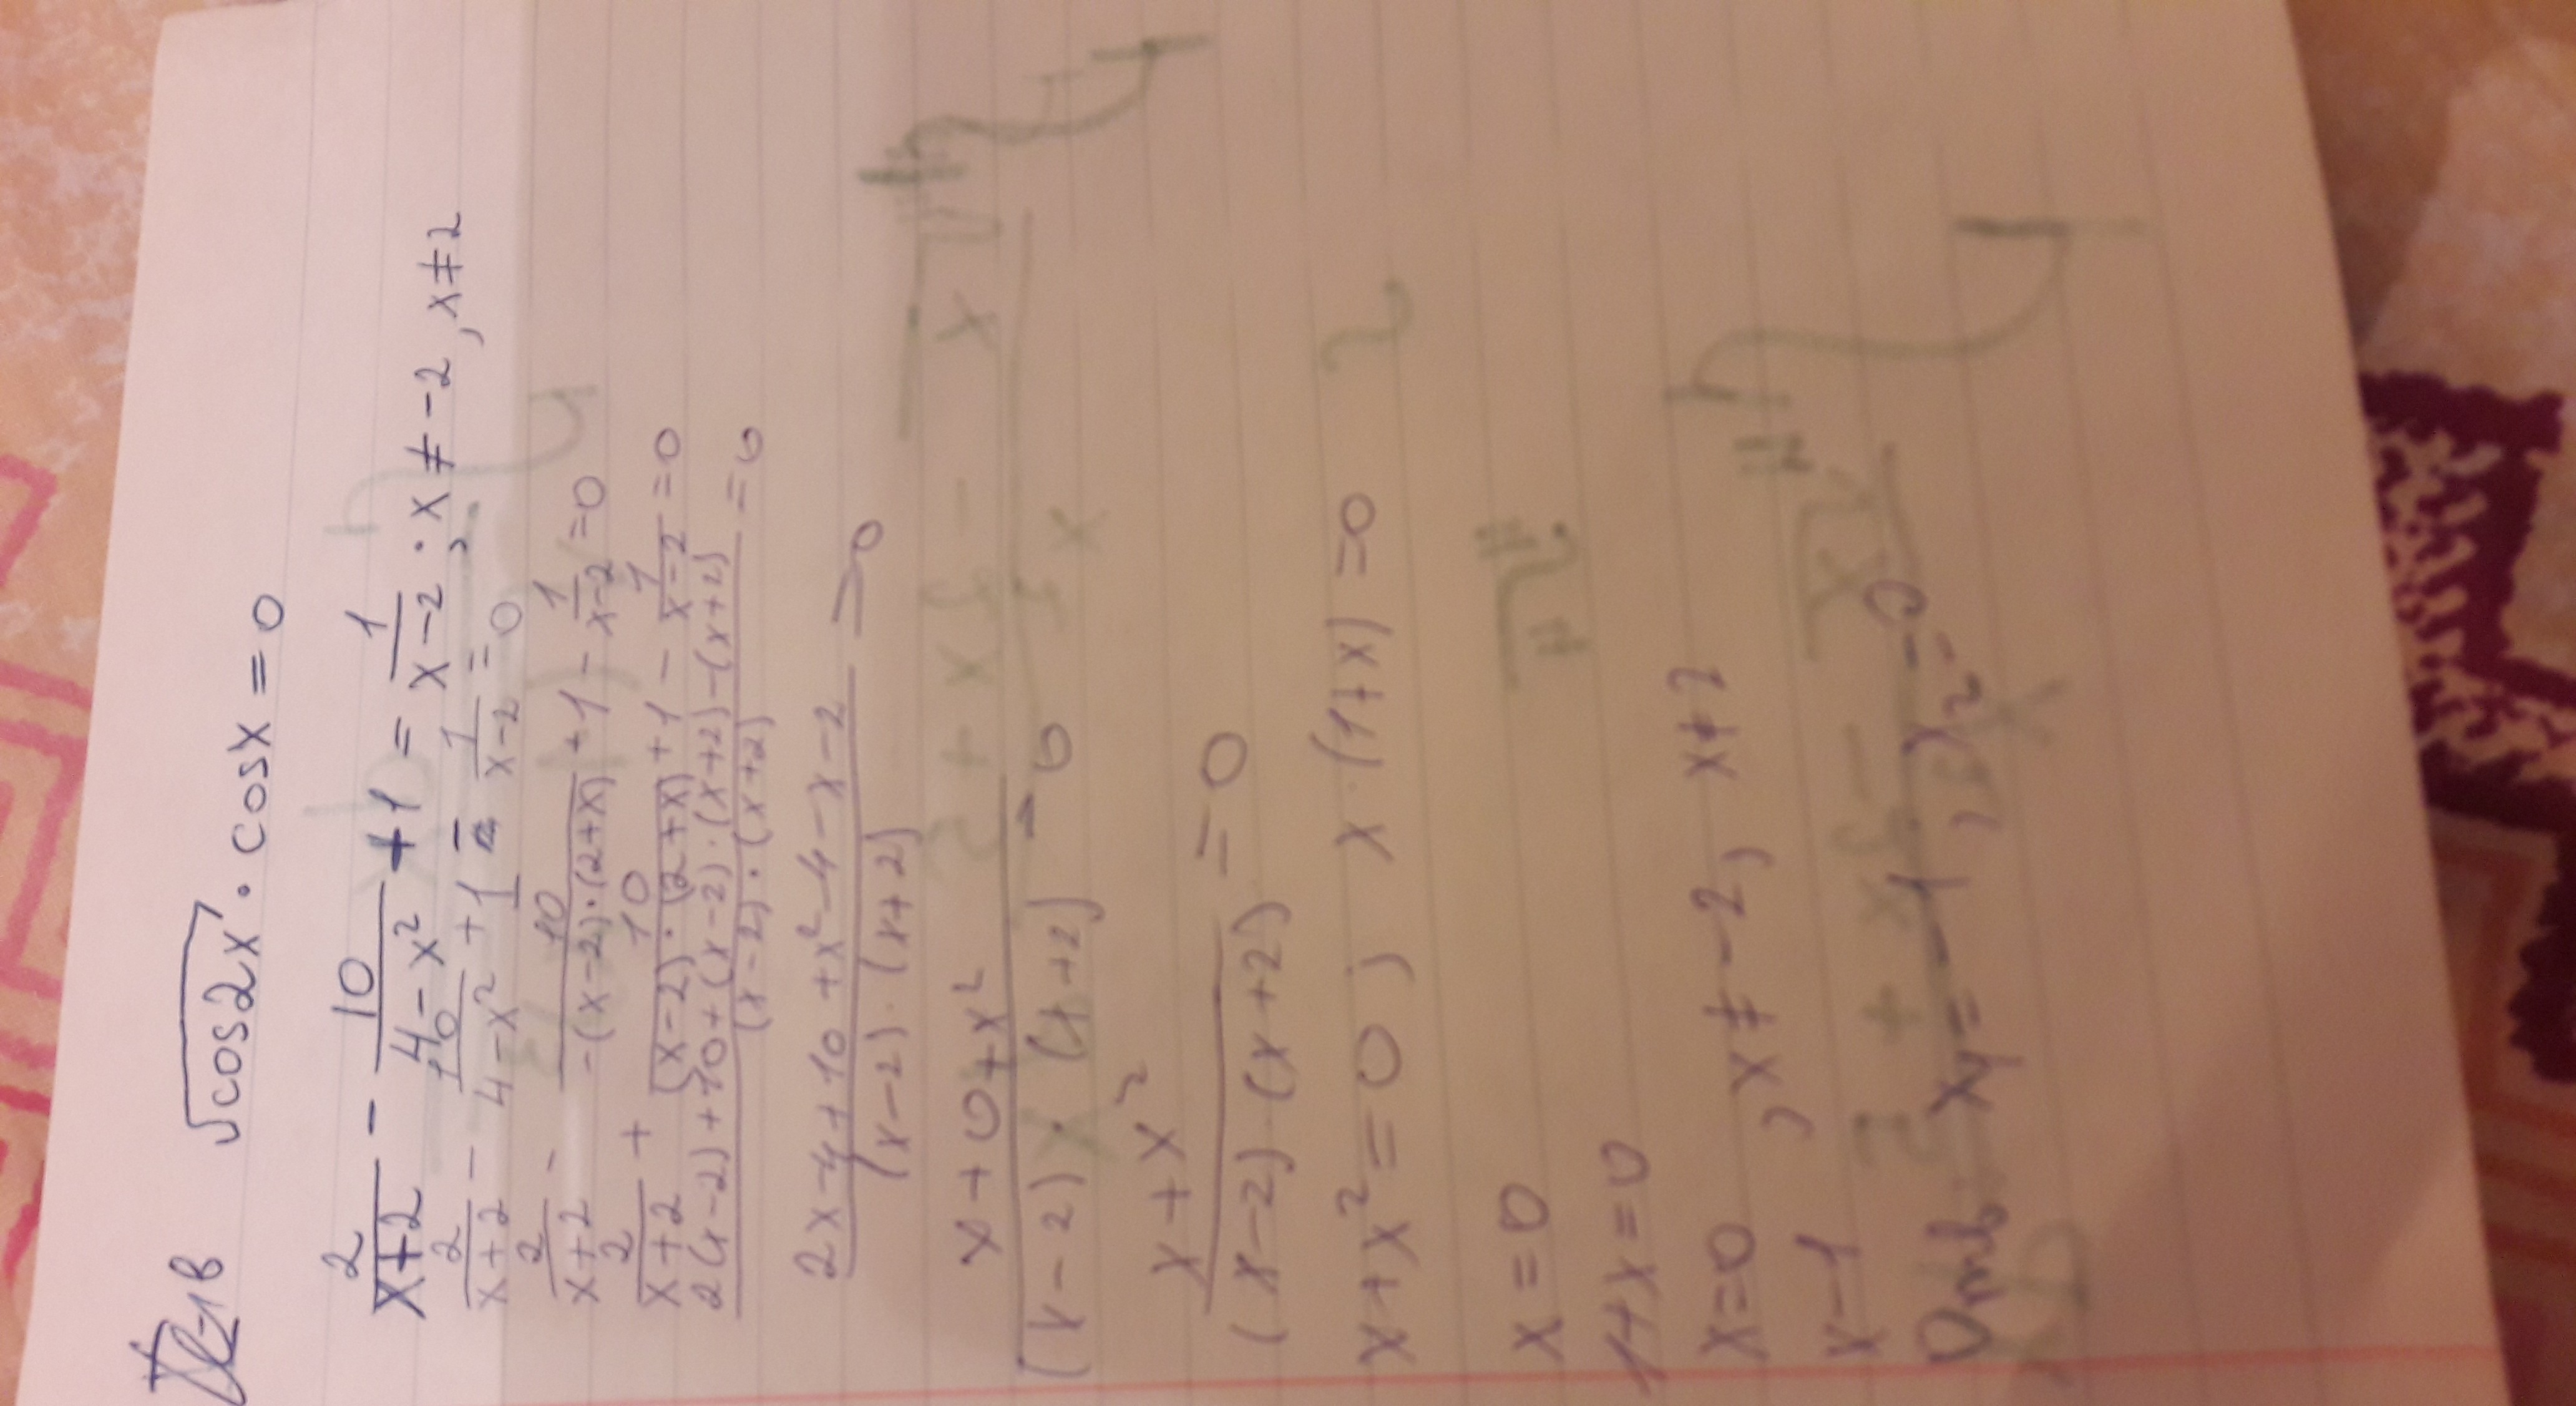 1В √cos2x · cosx = 0
2/(x+2) - 10/(4-x²) + 1 = 1/(x-2) · x ≠ -2, x ≠ 2
2/(x+2) - 10/(4-x²) + 1 - 1/(x-2) = 0
2/(x+2) - 10/(-(x-2)·(2+x)) + 1 - 1/(x-2) = 0
2/(x+2) + 10/((x-2)·(2+x)) + 1 - 1/(x-2) = 0
(2(x-2)+10+(x-2)·(x+2)-(x+2))/((x-2)·(x+2)) = 0
(2x-4+10+x²-4-x-2)/((x-2)·(x+2)) = 0
(x+0+x²)/((x-2)·(x+2)) = 0
(x+x²)/((x-2)·(x+2)) = 0
x+x² = 0; x·(1+x) = 0
x = 0
1+x = 0
x = 0
x-1, x ≠ -2, x ≠ 2
Отв x₁ = -1, x₂ = 0